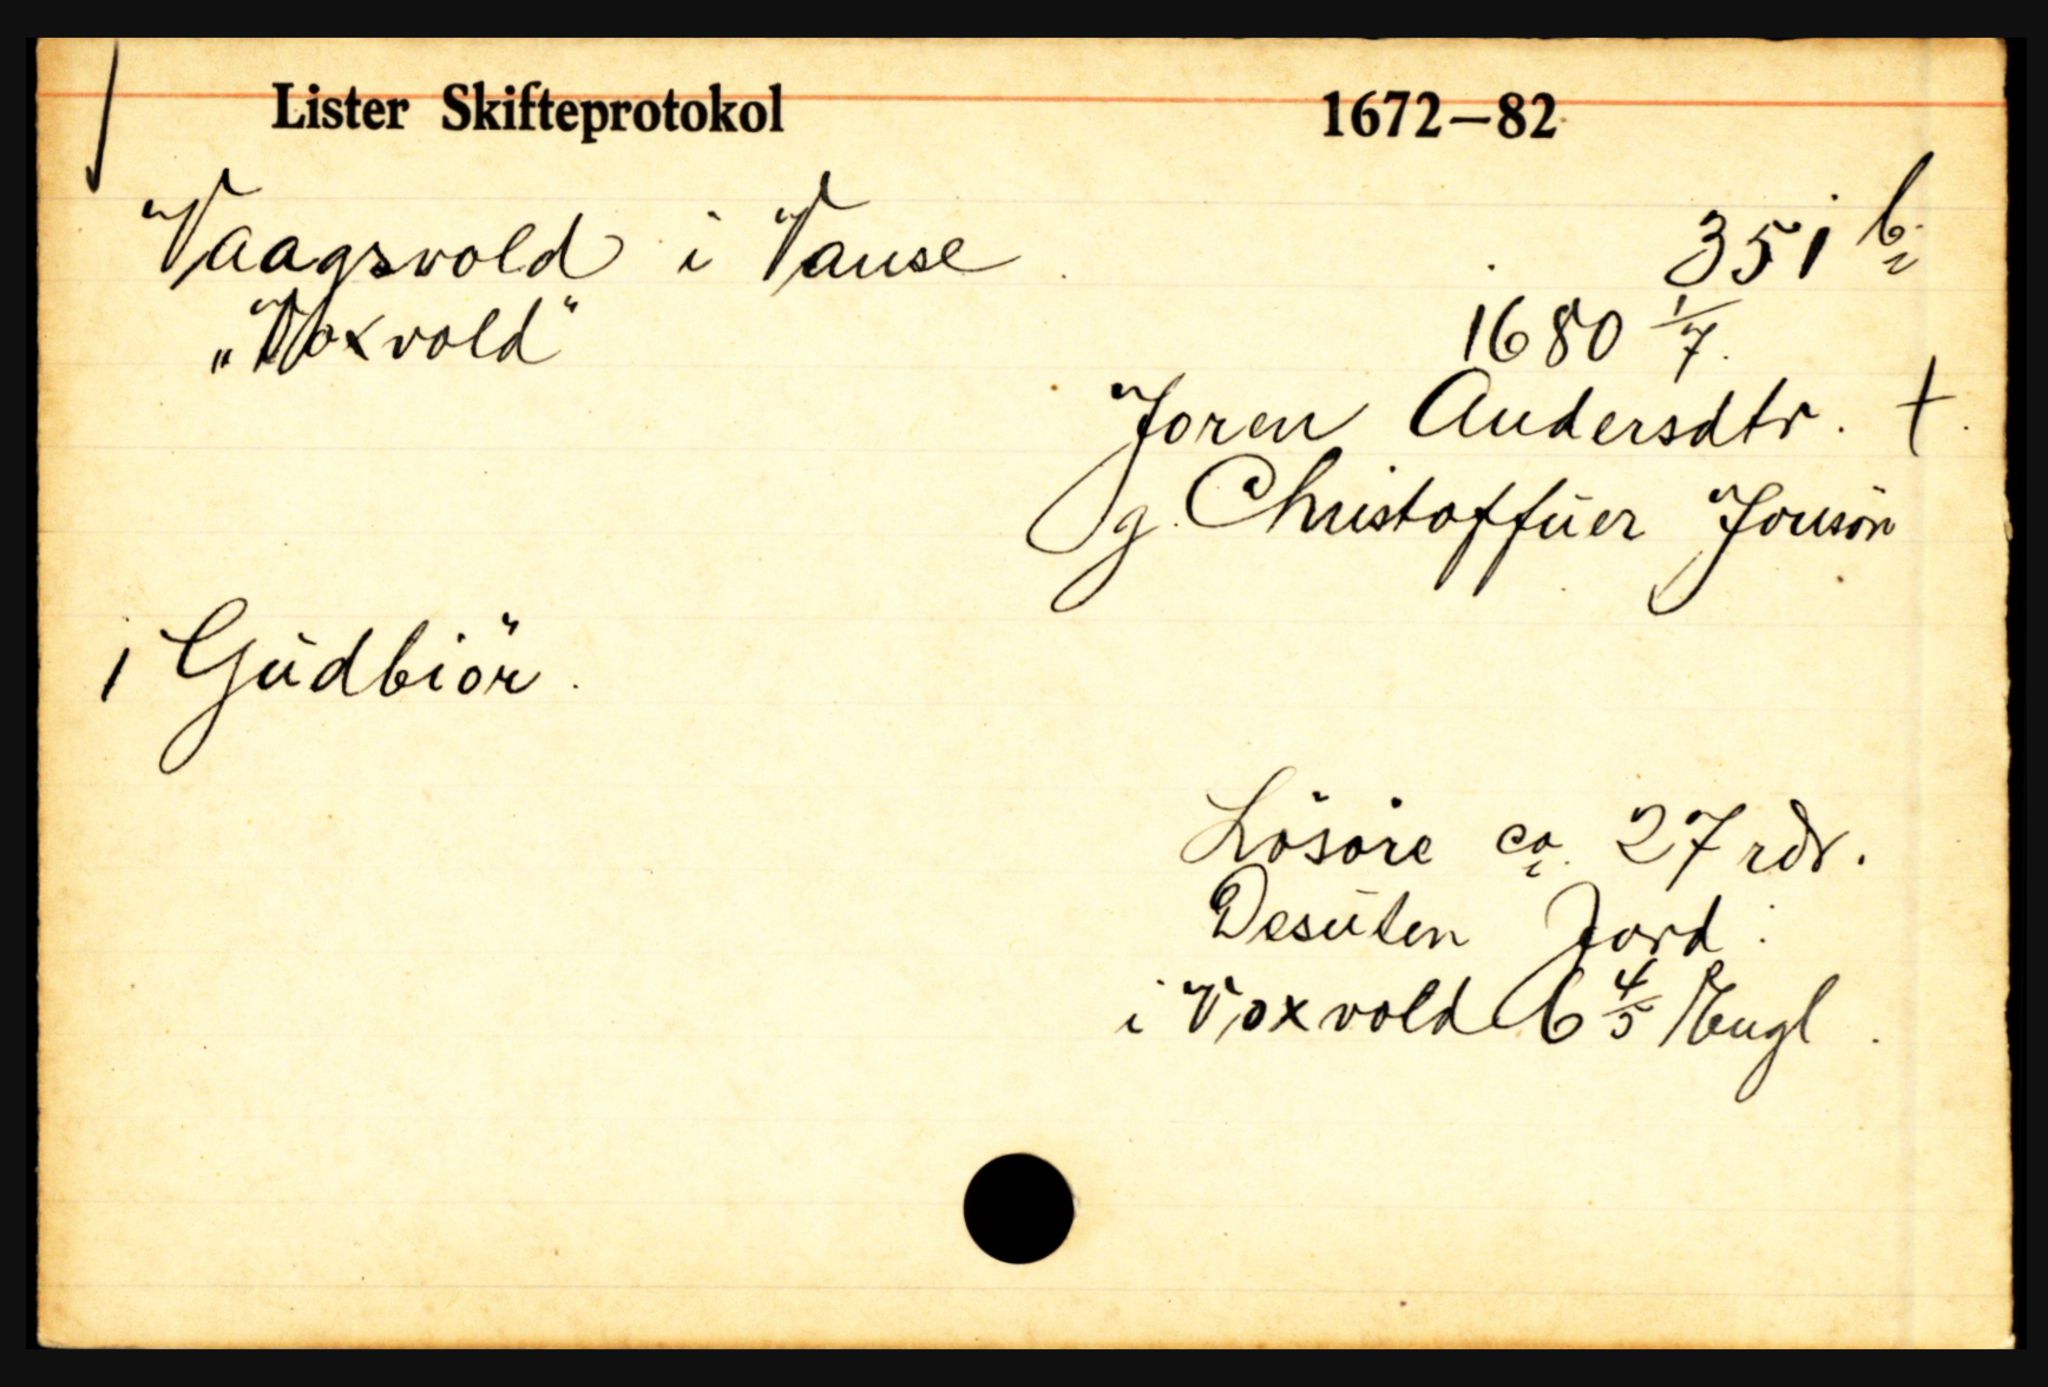 Lister Skifteprotokol 1672—82
Vaagsvold i Vanse 351 b
"Voxvold" 1680 1/7.
Joren Andersdtr. †.
g. Christoffüer Jonsön
1 Güdbiör.
Lösöre ca. 27 rdr.
Desüten Jord:
i Voxvold 6 4/5 Engl.